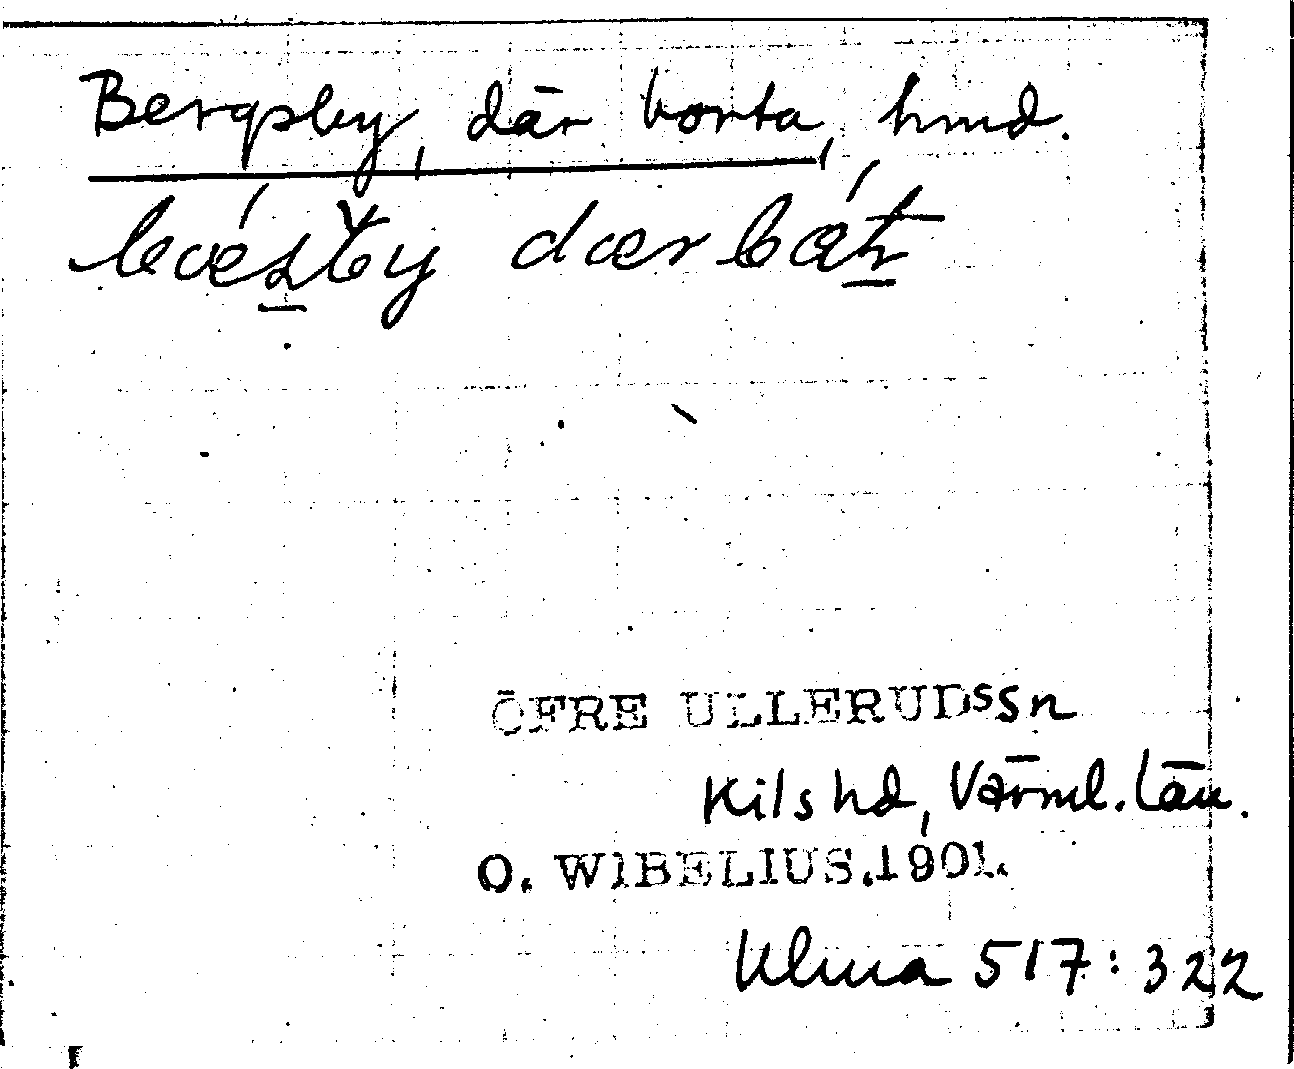 Bergsby, där borta, hmd.
ÖFRE ULLERUDSSn
Kils hd, Värml. län.
O. WIBELIUS. 1901.
Ulma 517:322